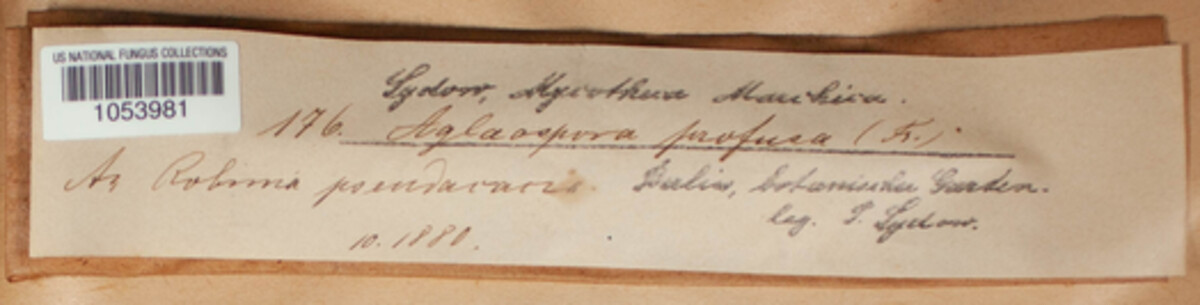 US NATIONAL FUNGUS COLLECTIONS
1053981
Sydow, Mycotheca Marchica.
176. Aglaospora profusa (Fr.)
An Robinia pseudacacia Berlin, botanischer Garten.
leg. P. Sydow.
10. 1880.